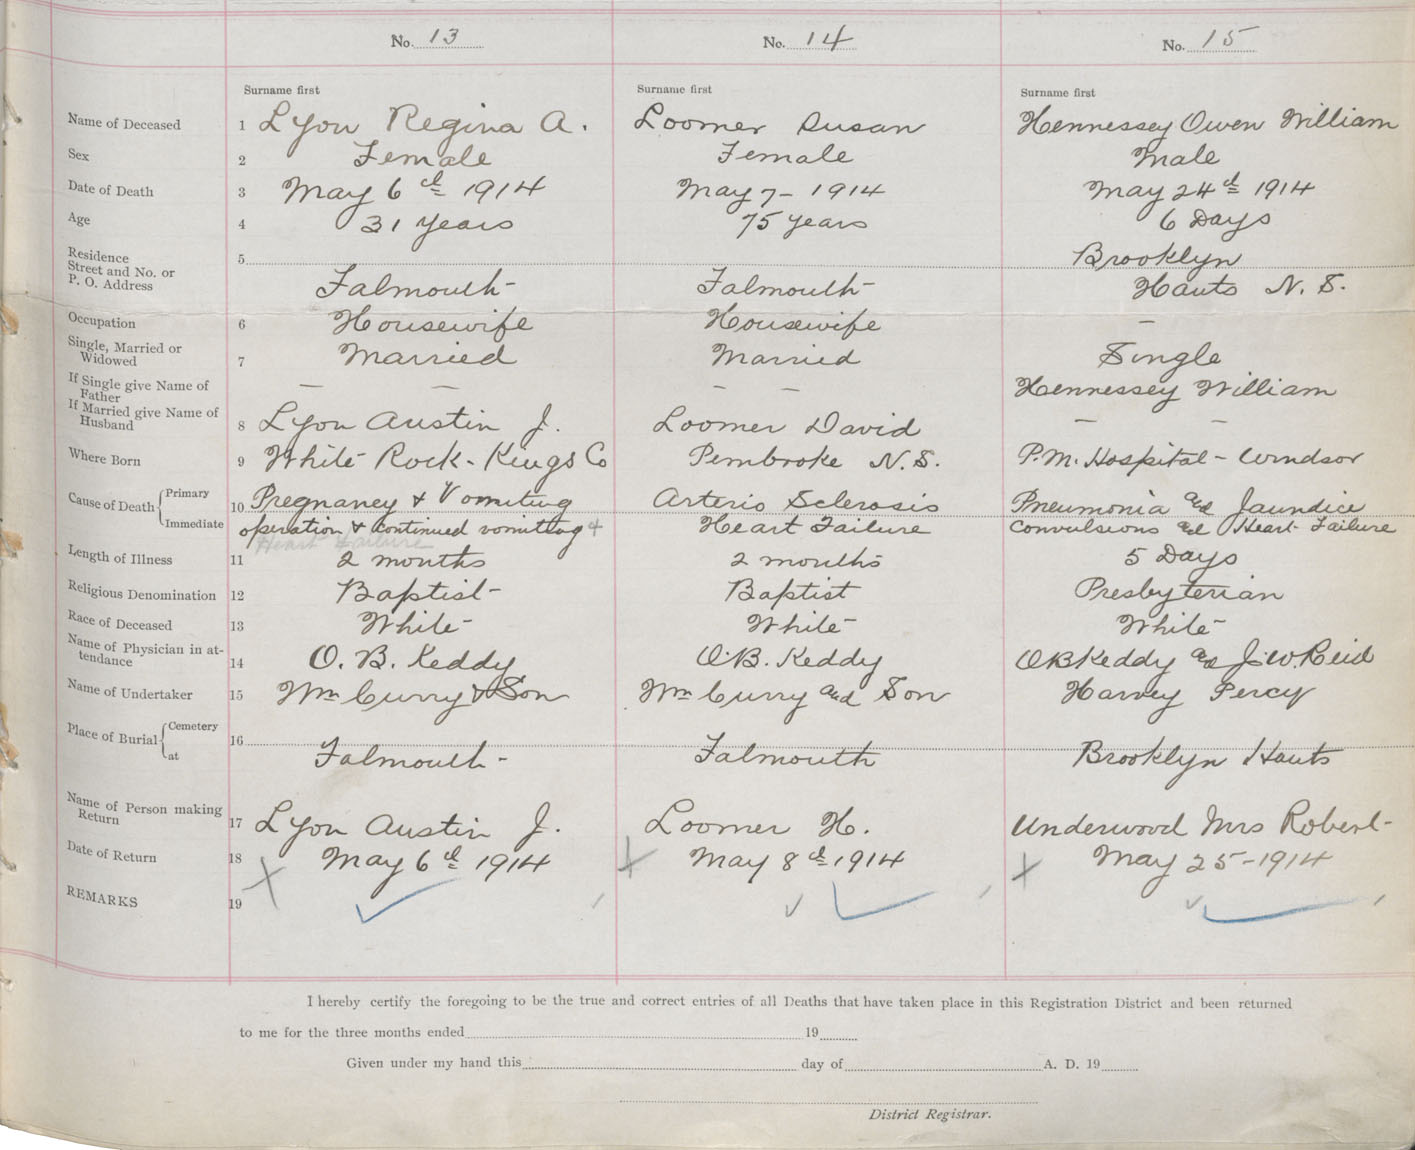 No. 13 No. 14 No. 15
Surname first Surname first Surname first
Name of Deceased 1 Lyon Regina A. Loomer Susan Hennessey Owen William
Sex 2 Female Female Male
Date of Death 3 May 6th 1914 May 7 - 1914 May 24th 1914
Age 4 31 years 75 years 6 Days
Residence 5 Brooklyn
Street and No. or
P. O. Address Falmouth - Falmouth - Hants N. S.
Occupation 6 Housewife Housewife —
Single, Married or
Widowed 7 Married Married Single
If Single give Name of
Father — — — — Hennessey William
If Married give Name of
Husband 8 Lyon Austin J. Loomer David — —
Where Born 9 White Rock - Kings Co Pembroke N. S. P. M. Hospital - Windsor
Cause of Death { Primary 10 Pregnancy & Vomiting Arterio Sclerosis Pneumonia and Jaundice
Immediate operation & continued vomiting & Heart Failure Convulsions and Heart Failure
Heart Failure
Length of Illness 11 2 months 2 months 5 Days
Religious Denomination 12 Baptist - Baptist Presbyterian
Race of Deceased 13 White - White - White -
Name of Physician in at-
tendance 14 O. B. Keddy O. B. Keddy O B Keddy and J. W. Reid
Name of Undertaker 15 Wm Curry & Son Wm Curry and Son Harvey Percy
Place of Burial { Cemetery 16
at Falmouth - Falmouth Brooklyn Hants
Name of Person making
Return 17 Lyon Austin J. Loomer H. Underwood Mrs Robert -
Date of Return 18 May 6th 1914 May 8th 1914 May 25 - 1914
REMARKS 19
I hereby certify the foregoing to be the true and correct entries of all Deaths that have taken place in this Registration District and been returned
to me for the three months ended 19
Given under my hand this day of A. D. 19
District Registrar.